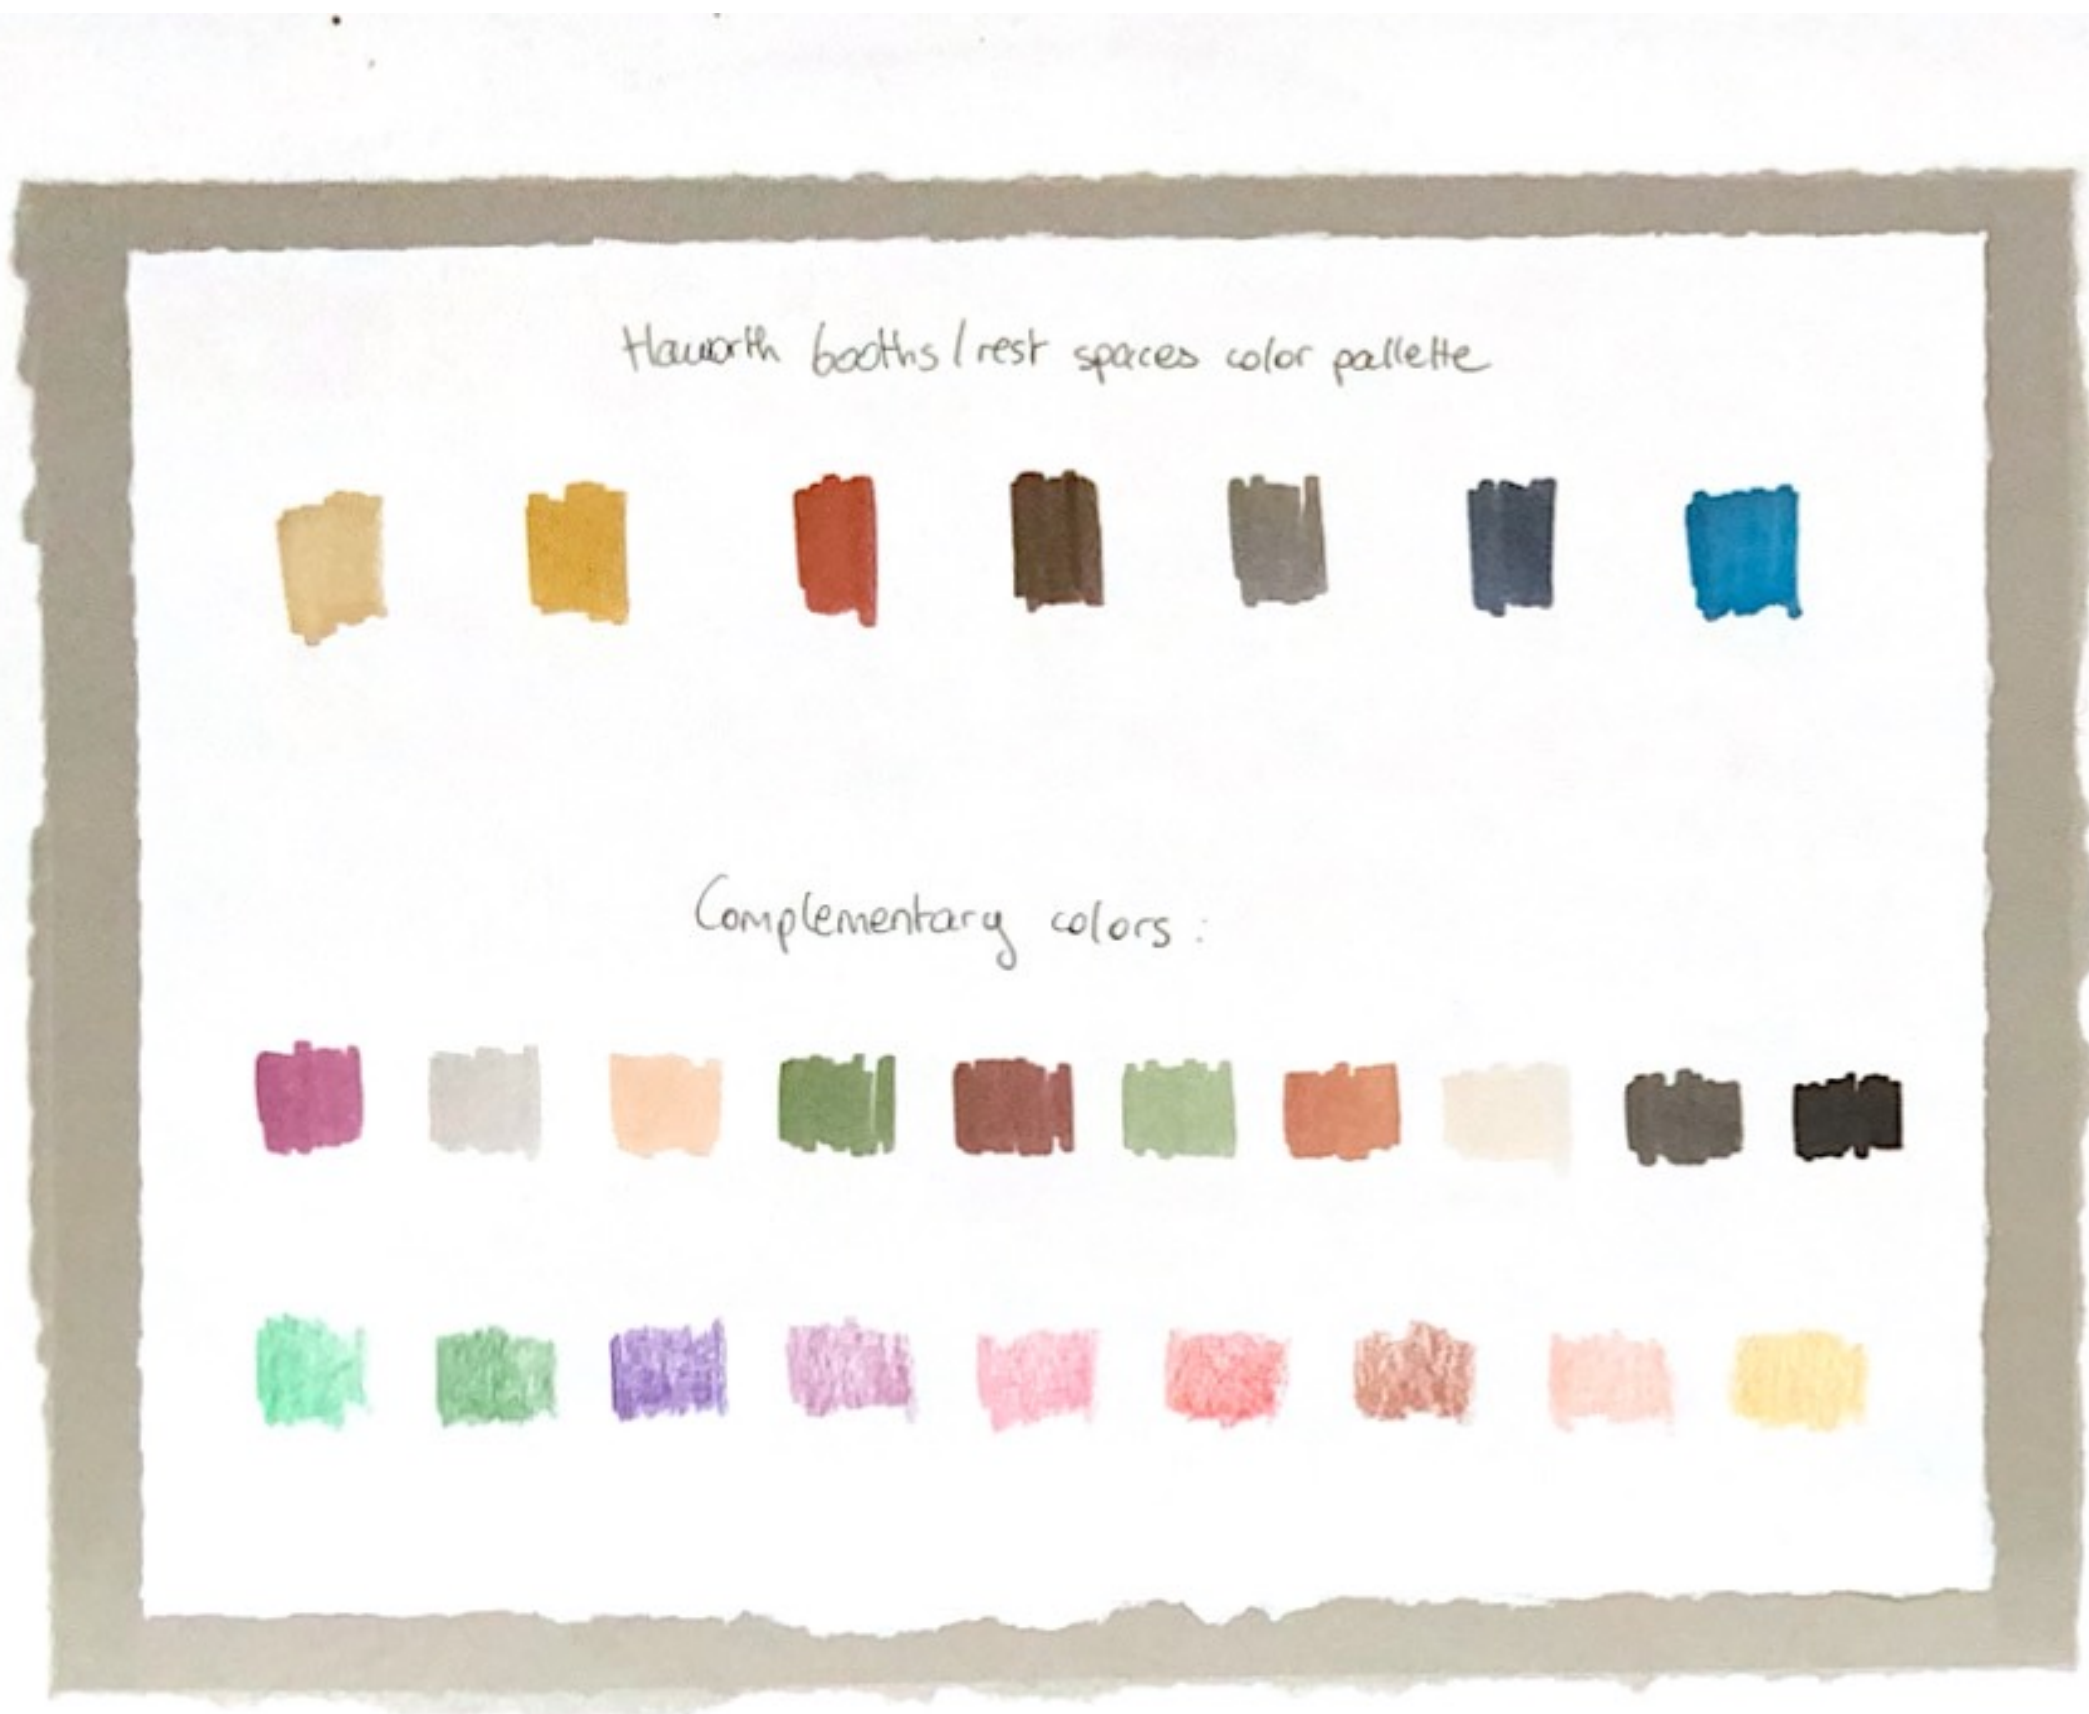 Haworth booths/rest spaces color pallette
Complementary colors: